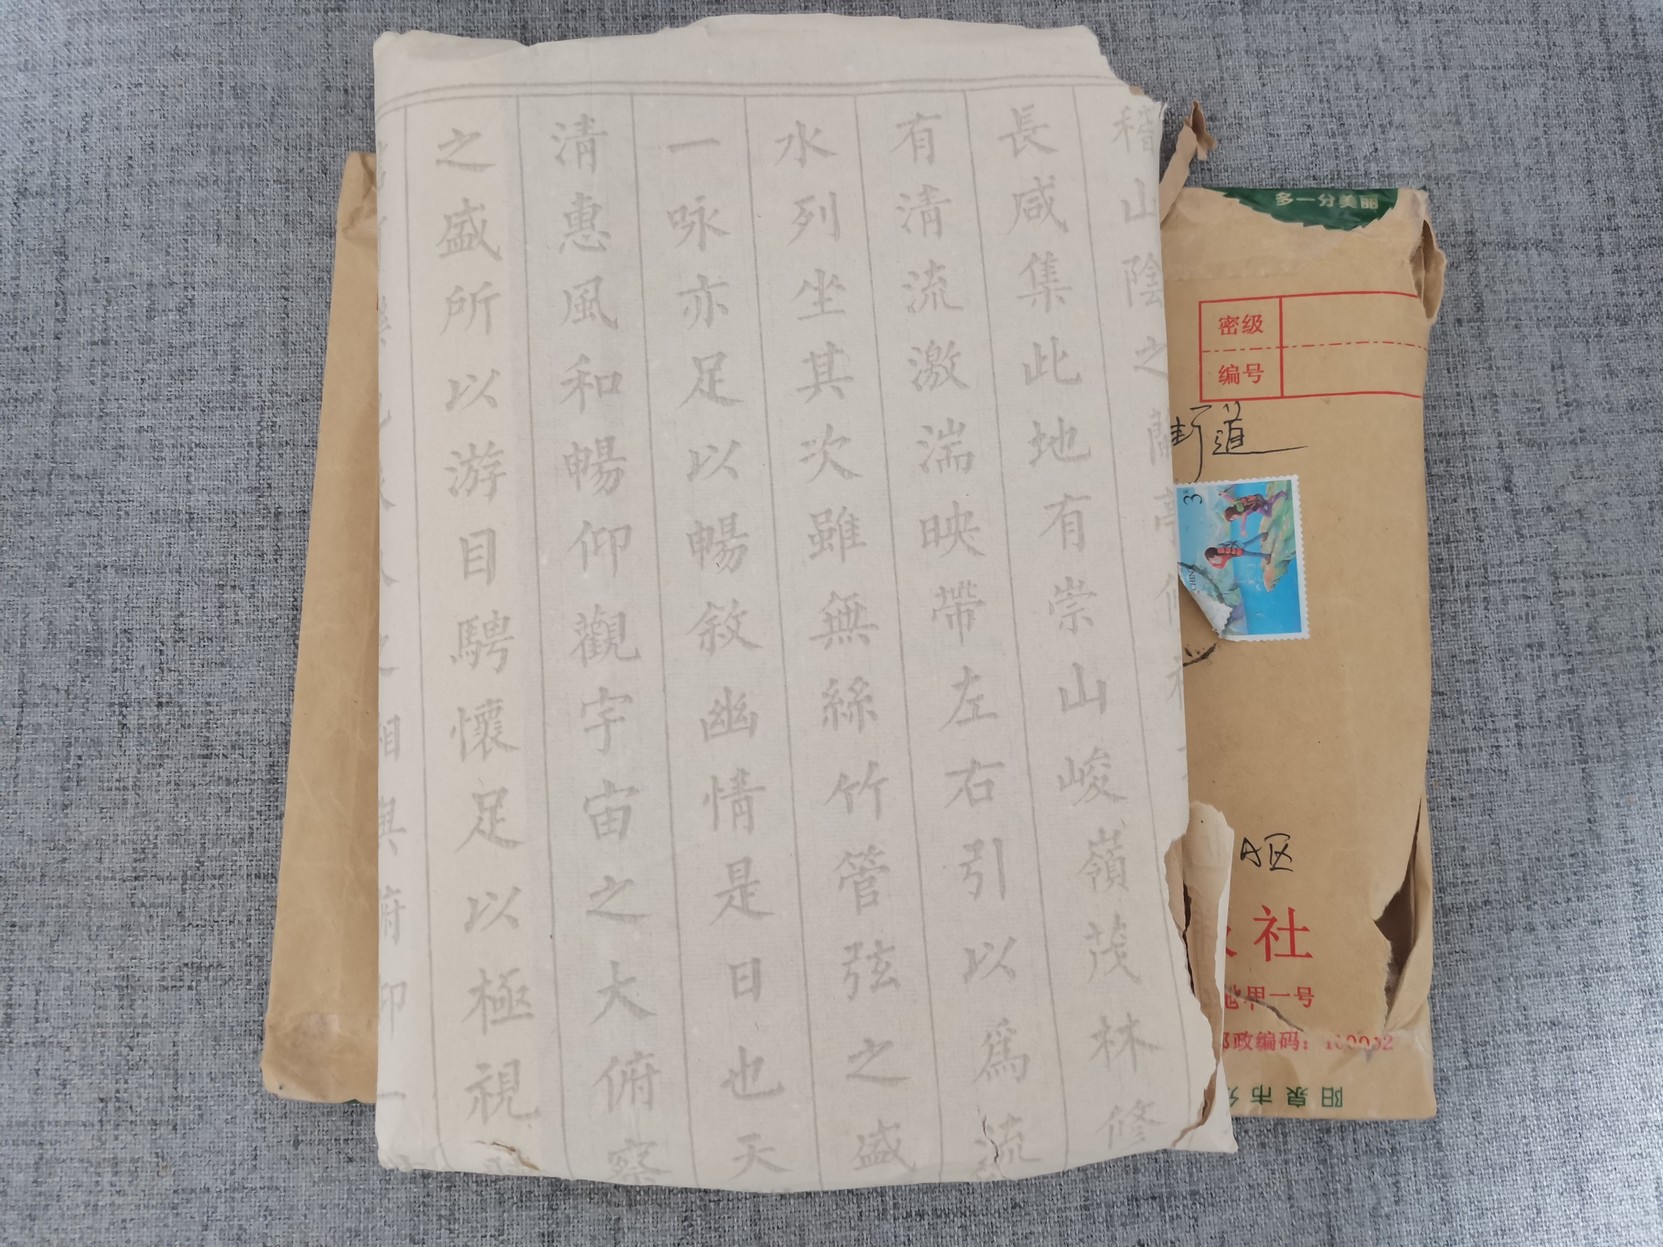 稽山陰之蘭亭脩
長咸集此地有崇山峻嶺茂林修
有清流激湍映帶左右引以爲流
水列坐其次雖無絲竹管弦之盛
一咏亦足以暢敘幽情是日也天
清惠風和暢仰觀宇宙之大俯察
之盛所以游目騁懷足以極視
相與俯仰一
多一分美丽
密级
编号
街道
3
CHINA
A区
社
甲一号
邮政编码：100032
阳泉市